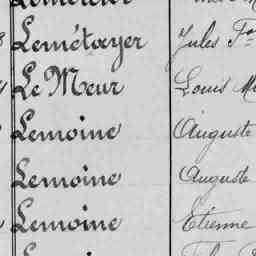 Lemétayer Jules
Le Meur Louis
Lemoine Auguste
Lemoine Auguste
Lemoine Etienne